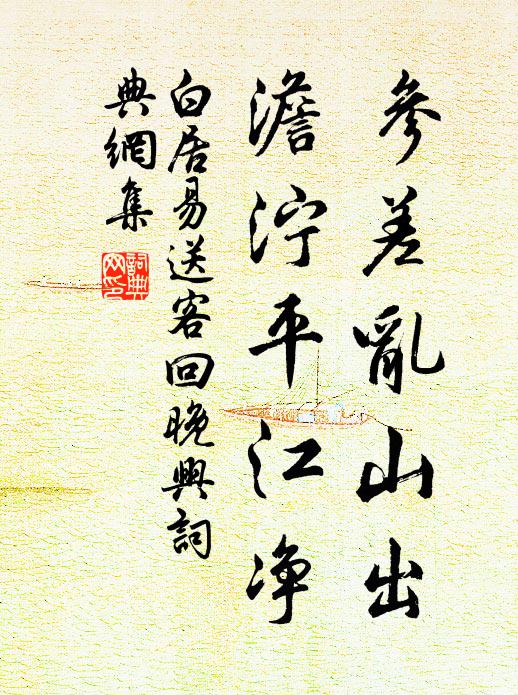 參差亂山出
澹泞平江净
白居易送客回晚興詞
典網集
詞典网印